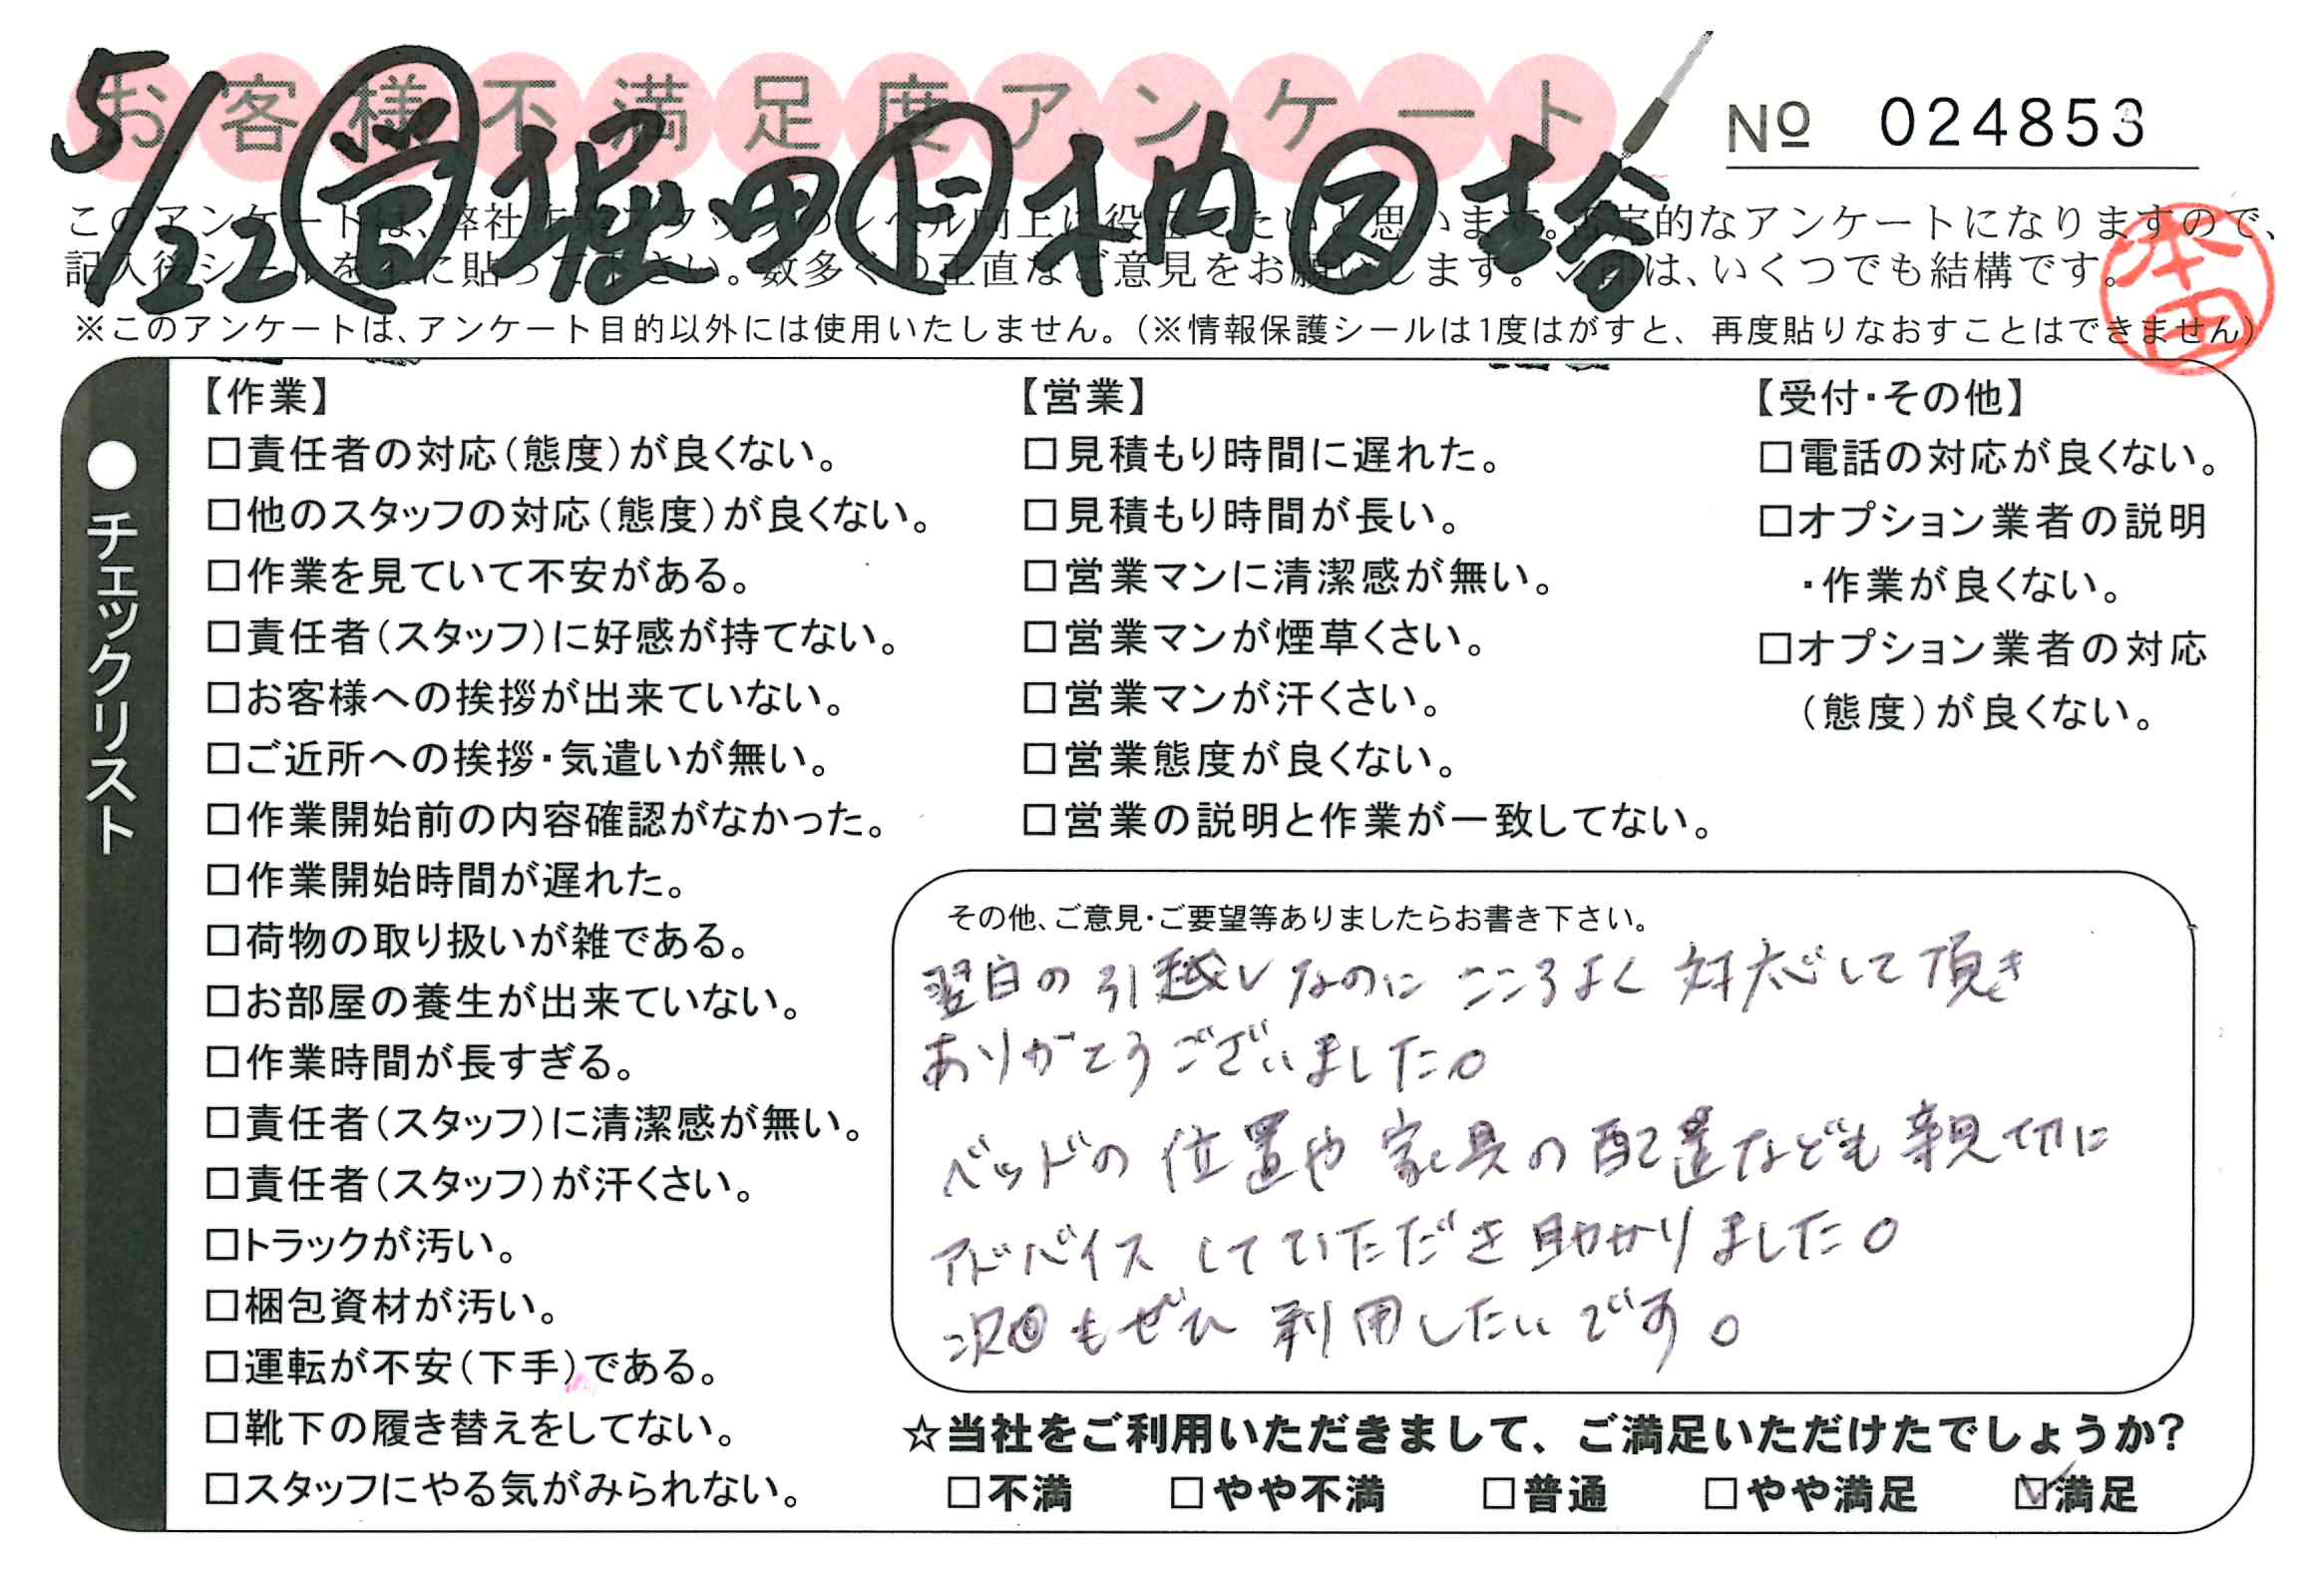 お客様不満足度アンケート
№ 024853
5/22 営 堀田 ド 柿内 ス
このアンケートは、弊社作業スタッフのレベル向上に役立てたいと思います。否定的なアンケートになりますので、
記入後シールを上に貼って下さい。数多くの正直なご意見をお願いします。✓印は、いくつでも結構です。
本田
※このアンケートは、アンケート目的以外には使用いたしません。(※情報保護シールは1度はがすと、再度貼りなおすことはできません)
●チェックリスト
【作業】
□責任者の対応(態度)が良くない。
□他のスタッフの対応(態度)が良くない。
□作業を見ていて不安がある。
□責任者(スタッフ)に好感が持てない。
□お客様への挨拶が出来ていない。
□ご近所への挨拶・気遣いが無い。
□作業開始前の内容確認がなかった。
□作業開始時間が遅れた。
□荷物の取り扱いが雑である。
□お部屋の養生が出来ていない。
□作業時間が長すぎる。
□責任者(スタッフ)に清潔感が無い。
□責任者(スタッフ)が汗くさい。
□トラックが汚い。
□梱包資材が汚い。
□運転が不安(下手)である。
□靴下の履き替えをしてない。
□スタッフにやる気がみられない。
【営業】
□見積もり時間に遅れた。
□見積もり時間が長い。
□営業マンに清潔感が無い。
□営業マンが煙草くさい。
□営業マンが汗くさい。
□営業態度が良くない。
□営業の説明と作業が一致してない。
【受付・その他】
□電話の対応が良くない。
□オプション業者の説明
・作業が良くない。
□オプション業者の対応
(態度)が良くない。
その他、ご意見・ご要望等ありましたらお書き下さい。
翌日の引越しなのに こころよく 対応して頂き
ありがとうございました。
ベッドの位置や家具の配置なども親切に
アドバイスしていただき助かりました。
次回もぜひ利用したいです。
☆当社をご利用いただきまして、ご満足いただけたでしょうか?
□不満 □やや不満 □普通 □やや満足 ☑満足